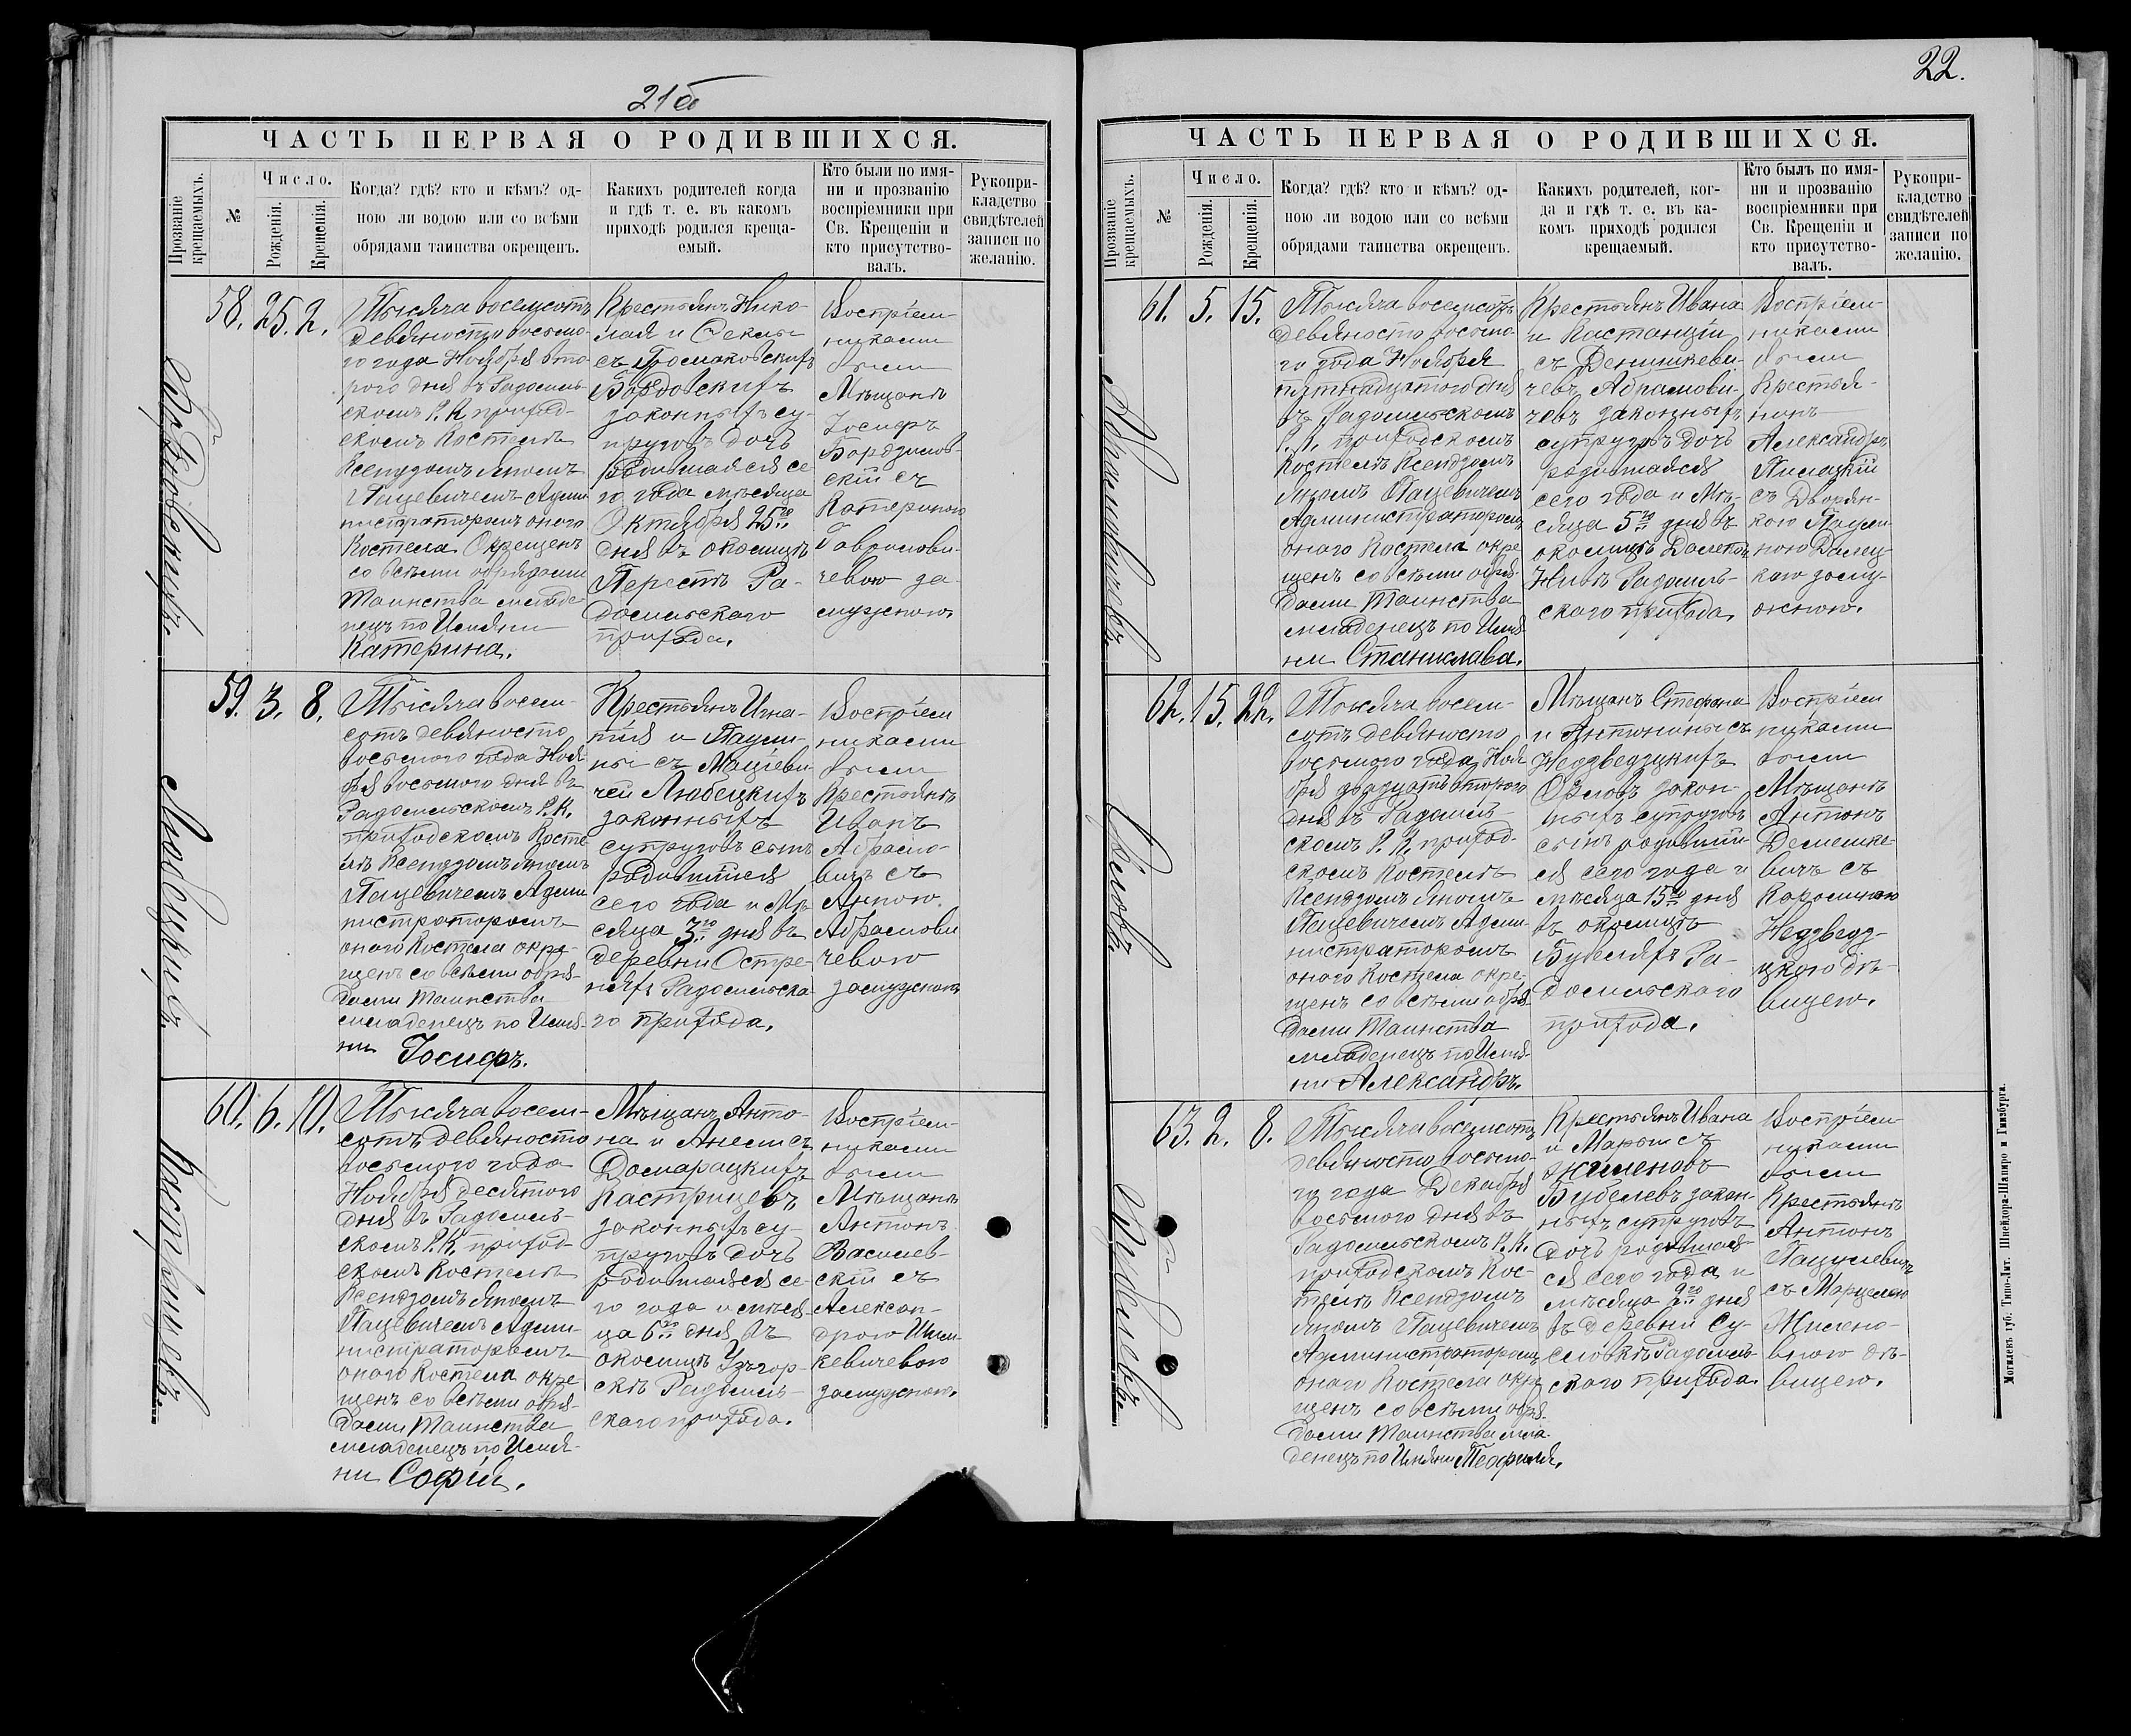 21б
ЧАСТЬ ПЕРВАЯ О РОДИВШИХСЯ.
Прозваніе крещаемыхъ.
№
Число.
Рожденія.
Крещенія.
Когда? гдѣ? кто и кѣмъ? од-
ною ли водою или со всѣми
обрядами таинства окрещенъ.
Какихъ родителей когда
и гдѣ т. е. въ какомъ
приходѣ родился креща-
емый.
Кто были по имя-
ни и прозванію
воспріемники при
Св. Крещеніи и
кто присутство-
валъ.
Рукопри-
кладство
свидѣтелей
записи по
желанію.
58. 25. 2.
Тысяча восемсотъ
девяносто восьмо-
го года Ноября вто-
рого дня въ Радомль-
скомъ Р. К. приход-
скомъ Костелѣ
Ксендзомъ Яномъ
Пацевичемъ Адми
нистраторомъ оного
Костела Окрещенъ
со всѣми обрядами
Таинства младе-
нецъ по Имяни
Катерина.
Крестьянъ Нико-
лая и Феклы
съ
законныхъ су-
пруговъ дочь
родившаяся се-
го года мѣсяца
Октября 25го
дня въ околицѣ
Перестѣ Ра-
домльскаго
прихода.
Воспріем-
никами
были
Мѣщанъ
Іосифъ
скій съ
Катериною
Гавриловы-
чевою за-
мужною.
Любецкихъ.
59. 3. 8.
Тысяча восем-
сотъ девяносто
восьмого года Ноя
бря восьмого дня въ
Радомльскомъ Р. К.
приходскомъ Косте
лѣ Ксендзомъ Яномъ
Пацевичемъ Адми
нистраторомъ
оного Костела окре-
щенъ со всѣми обря-
дами Таинства
младенецъ по Имя-
ни Іосифъ.
Крестьянъ Игна-
тія и Паули-
ны съ Мацеви-
чей Любецкихъ
законныхъ
супруговъ сынъ
родившійся
сего года и Мѣ
сяца 3го дня въ
деревни Остре-
няхъ Радомльска-
го прихода.
Воспріем
никами
были
Крестьянъ
Иванъ
Абрамо-
вичъ съ
Анною
Абрамови
чевою
замужною
60. 6. 10.
Тысяча восем-
сотъ девяносто
восьмого года
Ноября десятого
дня въ Радомль-
скомъ Р. К. приход
скомъ Костелѣ
Ксендзомъ Яномъ
Пацевичемъ Адми-
нистраторомъ
оного Костела окре
щенъ со всѣми обря-
дами Таинства
младенецъ по Имя-
ни Софія.
Мѣщанъ Анто-
на и Анели съ
Домарацкихъ
Кастрицевъ
законныхъ су-
пруговъ дочь
родившаяся се-
го года и мѣся-
ца 6го дня въ
околицѣ Узгор-
скѣ Радомль-
скаго прихода.
Воспріем-
никами
были
Мѣщанъ
Антонъ
Василев-
скій съ
Алексан-
дрою
кевичевою
замужною.
22.
ЧАСТЬ ПЕРВАЯ О РОДИВШИХСЯ.
Прозваніе крещаемыхъ.
№
Число.
Рожденія.
Крещенія.
Когда? гдѣ? кто и кѣмъ? од-
ною ли водою или со всѣми
обрядами таинства окрещенъ.
Какихъ родителей, ког-
да и гдѣ т. е. въ ка-
комъ приходѣ родился
крещаемый.
Кто былъ по имя-
ни и прозванію
воспріемники при
Св. Крещеніи и
кто присутство-
валъ.
Рукопри-
кладство
свидѣтелей
записи по
желанію.
Абрамовичевъ.
61. 5. 15.
Тысяча восемсотъ
девяносто восьмо-
го года Ноября
пятнадцатого дня
въ Радомльскомъ
Р. К. приходскомъ
Костелѣ Ксендзомъ
Яномъ Пацевичемъ
Администраторомъ
оного Костела окре
щенъ со всѣми обря-
дами Таинства
младенецъ по Имя-
ни Станислава.
Крестьянъ Ивана
и Констанціи
съ Денишкеви-
чевъ Абрамови-
чевъ законныхъ
супруговъ дочь
родившаяся
сего года и Мѣ-
сяца 5го дня въ
околицѣ
Нивѣ Радомль-
скаго прихода.
Воспріем-
никами
были
Крестья-
нинъ
Александръ
съ Дворян-
кою Паули-
ною
кою заму-
жною.
Орловъ.
62. 15. 22.
Тысяча восем-
сотъ девяносто
восьмого года Ноя
бря двадцать второго
дня въ Радомль-
скомъ Р. К. приход-
скомъ Костелѣ
Ксендзомъ Яномъ
Пацевичемъ Адми
нистраторомъ
оного Костела окре-
щенъ со всѣми обря
дами Таинства
младенецъ по Имя-
ни Александръ.
Мѣщанъ Стефана
и Антонины съ
Недзведзкихъ
Орловъ закон-
ныхъ супруговъ
сынъ родившій
ся сего года и
мѣсяца 15го дня
въ околицѣ
Бубеляхъ Ра-
домльскаго
прихода.
Воспріем
никами
были
Мѣщанъ
Антонъ
Демешке-
вичъ съ
Каролиною
Недзведз-
цкою дѣ-
вицею.
Бубелевъ.
63. 2. 8.
Тысяча восемсотъ
девяносто восьмо-
го года Декабря
восьмого дня въ
Радомльскомъ Р. К.
приходскомъ Кос-
телѣ Ксендзомъ
Яномъ Пацевичемъ
Администраторомъ
оного Костела окре
щенъ со всѣми обря-
дами Таинства мла
денецъ по Имяни Теофиля.
Крестьянъ Ивана
и Марыи съ
Жиленовъ
Бубелевъ закон-
ныхъ супруговъ
дочь родившая-
ся сего года и
мѣсяца 2го дня
въ деревни Су-
словкѣ Радомль-
скаго прихода.
Воспріем
никами
были
Крестьянъ
Антонъ
Пацулевичъ
съ Марцелею
Жилено-
вною дѣ-
вицею.
Могилевъ губ. Типо-Лит. Шнейдора-Шапиро и Гинзбурга.